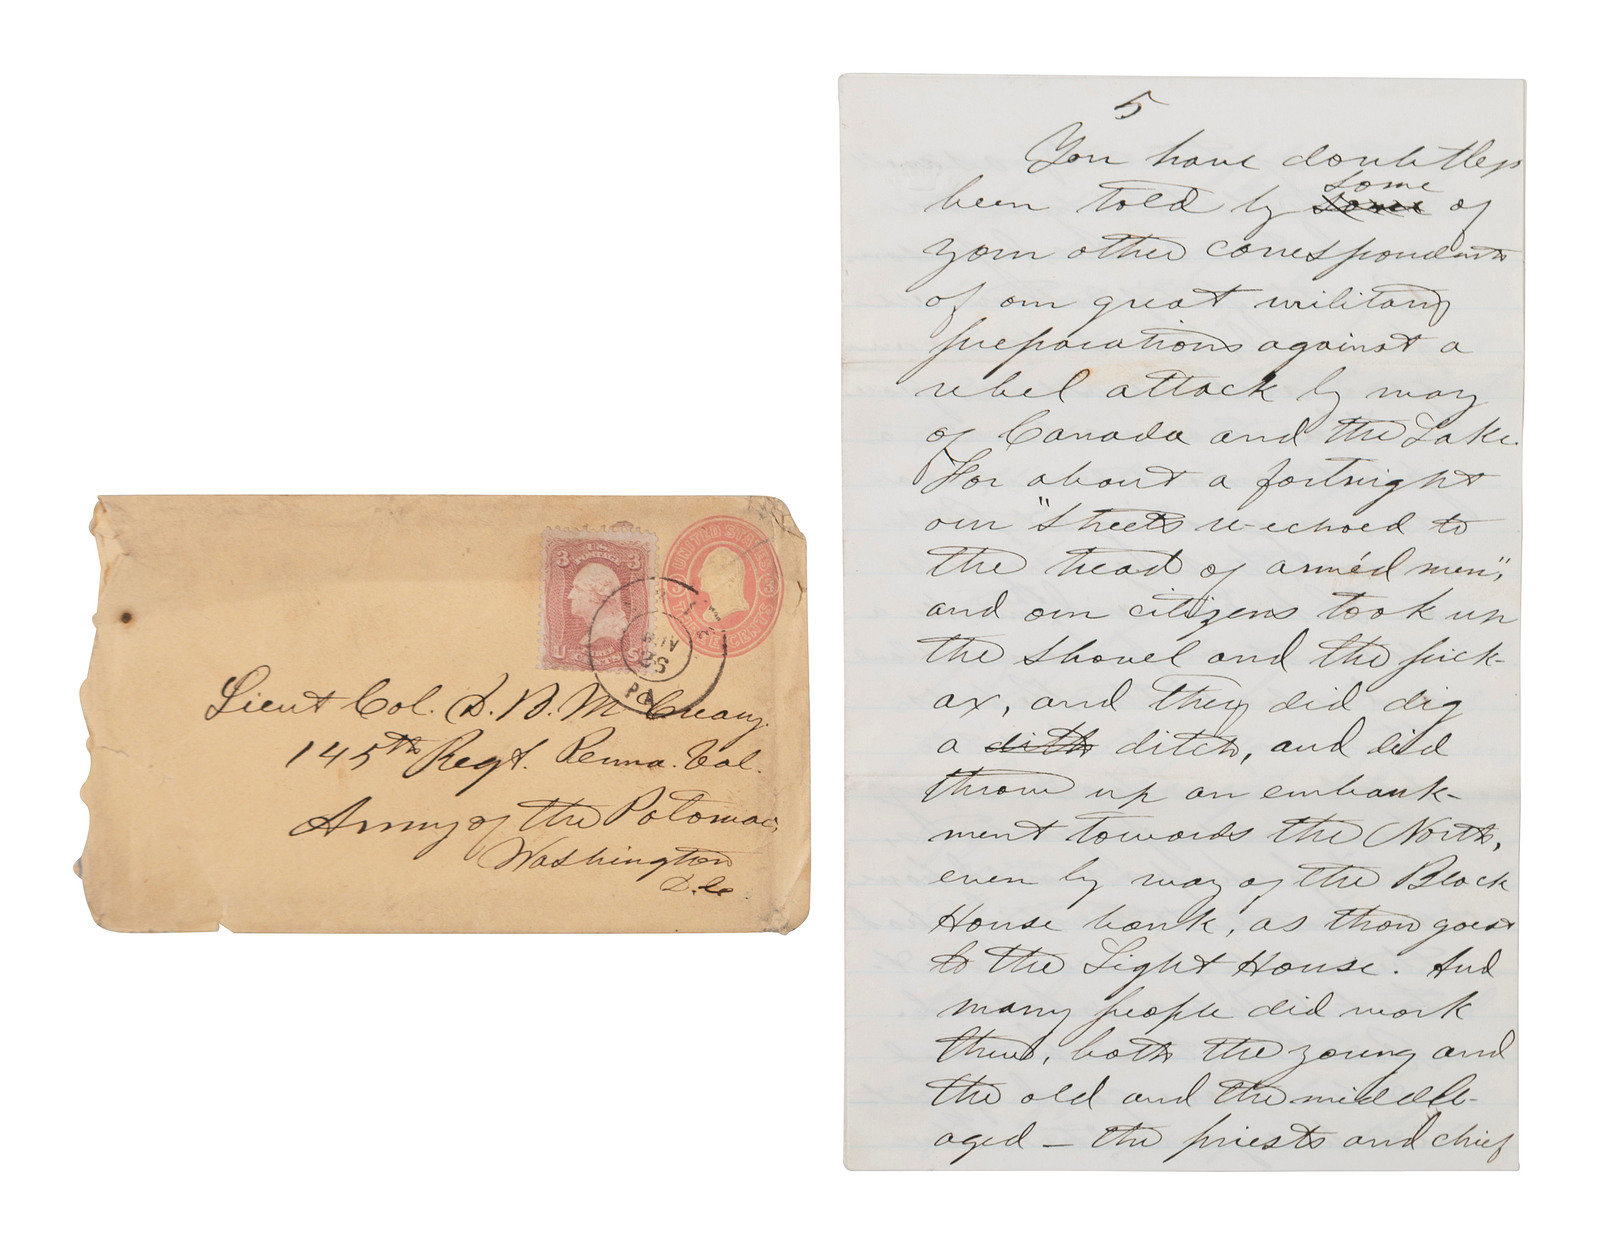 3 3
U.S. POSTAGE
UNITED STATES
THREE CENTS
U S
THREE CENTS
28
PA
Lieut Col. D. B. McCreary.
145th Regt. Penna. Vol.
Army of the Potomac,
Washington
D.C.
5
You have doubtless
been told by some some of
your other correspondents
of our great military
preparations against a
rebel attack by way
of Canada and the Lake.
For about a fortnight
our "streets re-echoed to
the tread of arméd men",
and our citizens took up
the shovel and the pick-
ax, and they did dig
a dith ditch, and did
throw up an embank-
ment towards the North,
even by way of the Block
House bank, as thou goest
to the Light House. And
many people did work
there, both the young and
the old and the middle-
aged — the priests and chief